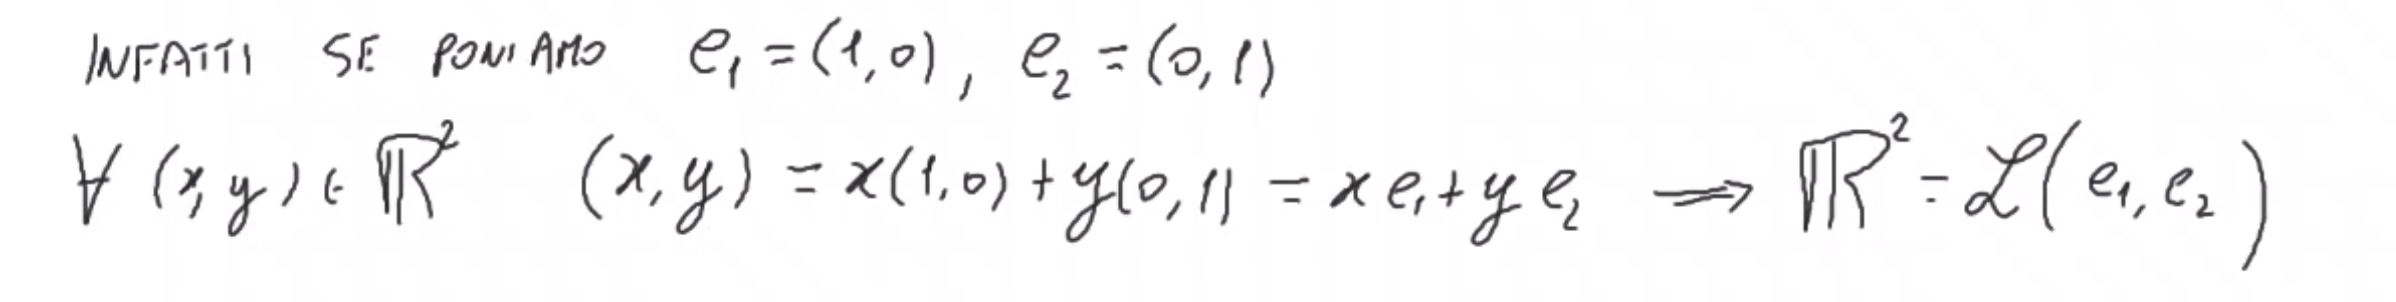 INFATTI SE PONIAMO e₁ = (1,0), e₂ = (0,1)
∀ (x,y) ∈ ℝ² (x,y) = x(1,0) + y(0,1) = x e₁ + y e₂ ⟹ ℝ² = ℒ(e₁,e₂)